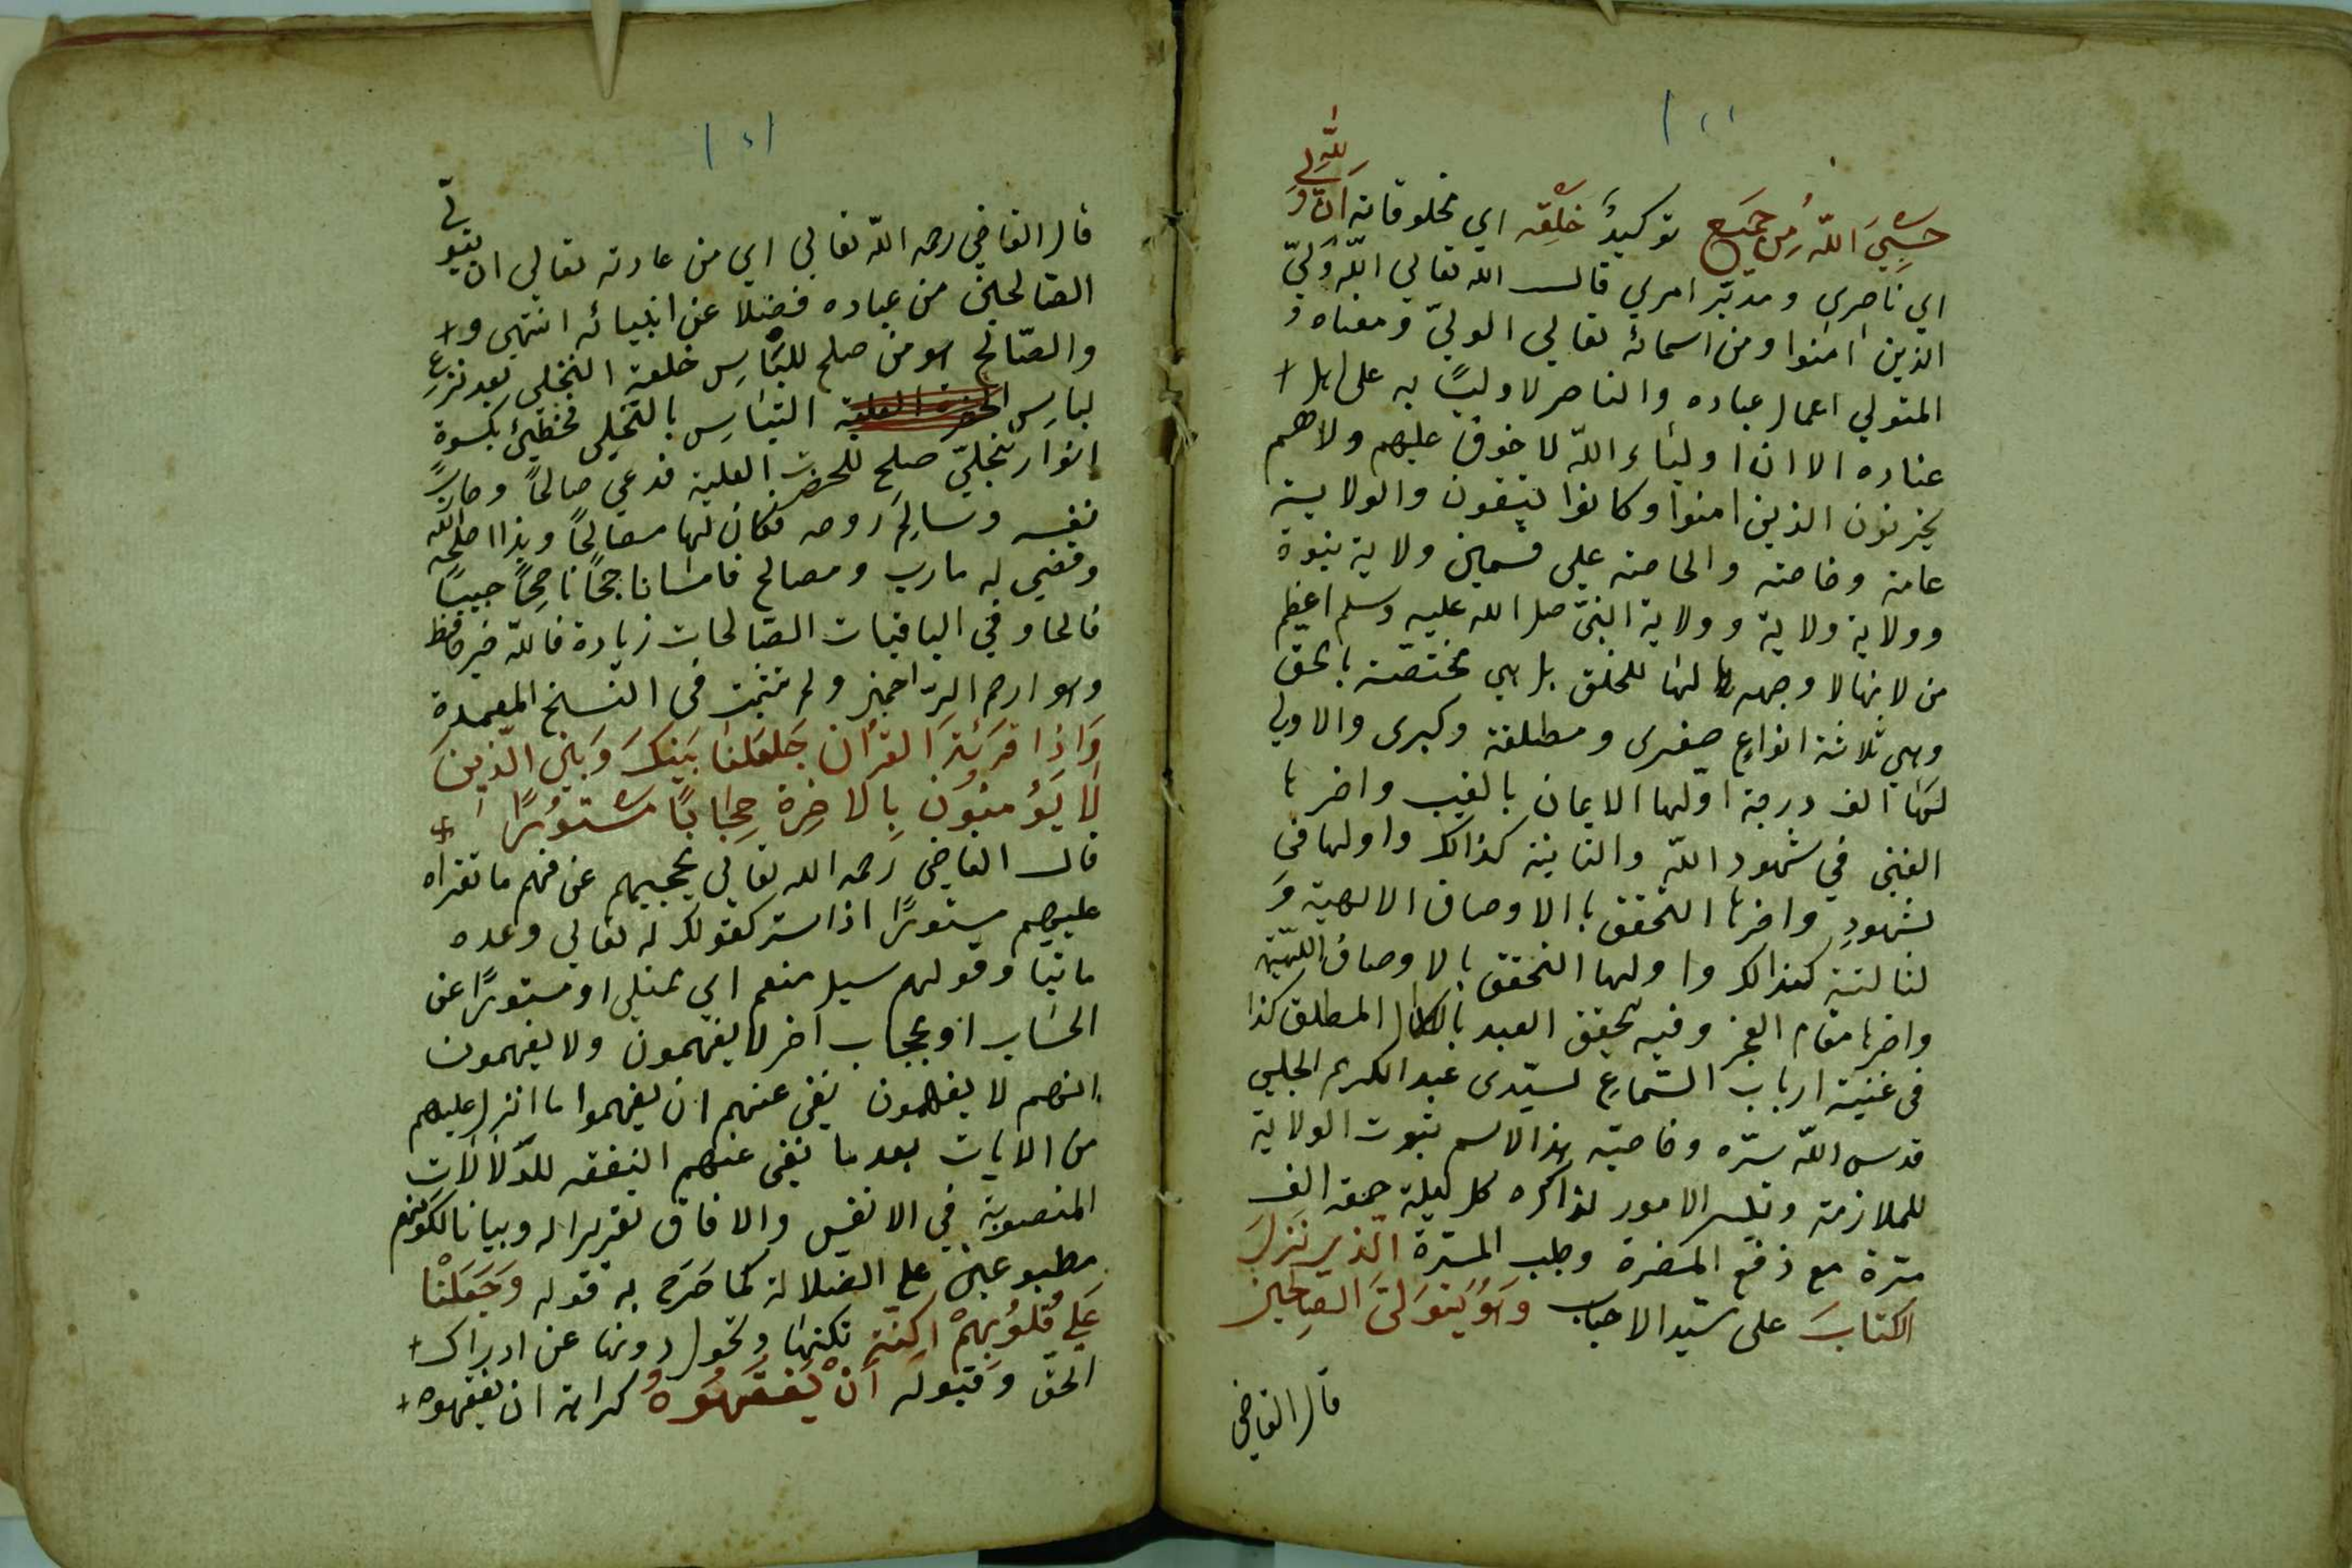 حَسْبِيَ اللّٰهُ مِن جميع توكيدٌ خَلْقِه اي مخلوقاته اِنّ وَلِيِّ اللّٰه
اي ناصري ومدبّر امري قال الله تعالي اللّه وَلِيّ
الذين امنوا ومن اسمائه تعالي الوليّ ومعناه
المتولي اعمال عباده والناصر لاوليائه على اهل
عناده الا ان اولياء اللّه لا خوف عليهم ولاهم
يحزنون الذين امنوا وكانوا يتقون والولاية
عامة وخاصة والخاصة علي قسمين ولاية نبوة
وولاية ولاية وولاية النبيّ صلى الله عليه وسلم اعظم
من لانها لا وجهه لها للخلق بل هي مختصّة بالحق
وهي ثلاثة انواع صغرى ومطلقة وكبرى والاولي
لها الف درجة اوّلها الايمان بالغيب واخرها
الفنى في شهود اللّه والثانية كذالك واولها في
لشهودِ واخرها التحقق بالاوصاف الالهية وَ
لثالثة كذالك واولها التحقق بالاوصاف اللهية
واخرها مقام العجز وفيه تحقق العبد بالكمال المطلق كذا
في غنية ارباب السّماع لسيّدى عبد الكريم الجيلي
قدس اللّه سرّه وخاصيّة هذالاسم ثبوت الولاية
للملازمة وتيسر الامور لذاكره كل ليلة جمعة الف
مرّة مع دفع المضرة وجلب المسرّة الّذي نَزلَ
الكتابَ على سيّد الاحباب وَهُوَ يَتَوَلَّى الصّالحين
قال القاضي
قال القاضي رحمه اللّه تعالي اي من عادته تعالي ان يتولّى
الصّالحين من عباده فضلا عن انبيائه انتهى و
والصّالح هو من صلح للبَاسِ خلعة التجلي بعد نزعِ
لباسِ التبَاسِ بالتخلي فحظيَ بكسوة
انوار تجلّيّ صلح للحضرت العلية فدعي صالحًا
نفسه وسَالِم روحه فكان لها مصالِحًا وهذا اصلحَه اللّه
وقضي له مارب ومصالح فامسا ناجحًا ناصحًا حبيبًا
فالحا وفي الباقيات الصّالحات زيادة فاللّه خير حافظ
وهو ارحم الرّاحمين ولم تثبت في النسخ المعتمدة
وَاِذا قرَئتَ القُراٰن جَعَلْنا بَينَكَ وَبَين الّذينَ
لَا يُؤمنوُن بِالاخِرَة حِجَابًا مَسْتوُرًا
قال القاضي رحمه الله تعالي يحجبهم عن فهم ما تقراه
عليهم مستورًا اذا ستر كقولك له تعالي وعده
ماتيا وقولهم سيل مفعم اي ممتلي او مستورًا عن
الحسَاب او بحجاب اخر لا يفهمون ولا يفهمون
انهم لا يفهمون نفى عنهم ان يفهموا ما انزل عليهم
من الايات بعد ما نفى عنهم التفقه للدّلالات
المنصوبة في الانفس والافاق تقريرا له وبيانا لكونهم
مطبوعين على الضلالة كما صَرَح به قوله وَجَعَلْنَا
عَلَي قُلُوبِهِمْ اَكِنّة تكنها وتحول دونها عن ادراك
الحقّ وَقبوله اَنْ يَفقَهُوهُ كراهة ان يفقهوه